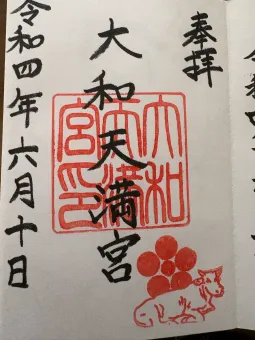 奉拝
大和天満宮
大和天満宮印
令和四年六月十日